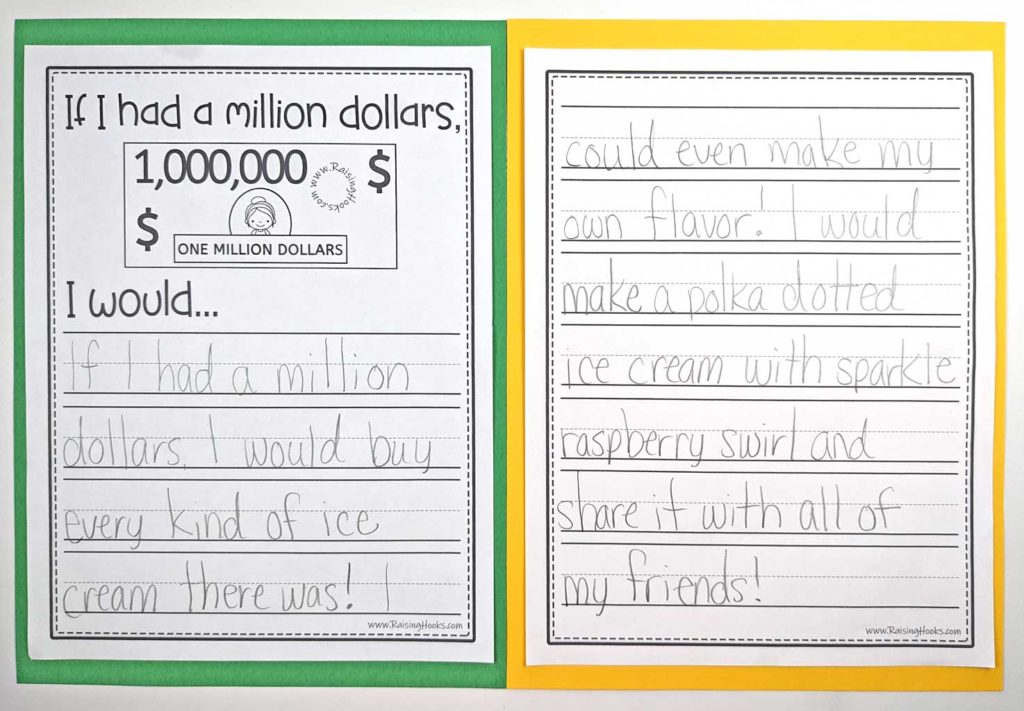 If I had a million dollars,
1,000,000
www.RaisingHooks.com
$
$
ONE MILLION DOLLARS
I would...
If I had a million
dollars, I would buy
every kind of ice
cream there was! I
www.RaisingHooks.com
could even make my
own flavor! I would
make a polka dotted
ice cream with sparkle
raspberry swirl and
share it with all of
my friends!
www.RaisingHooks.com